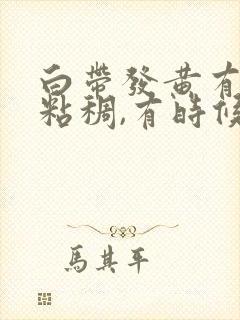 白帶發黃有
粘稠,有時候
馬其平